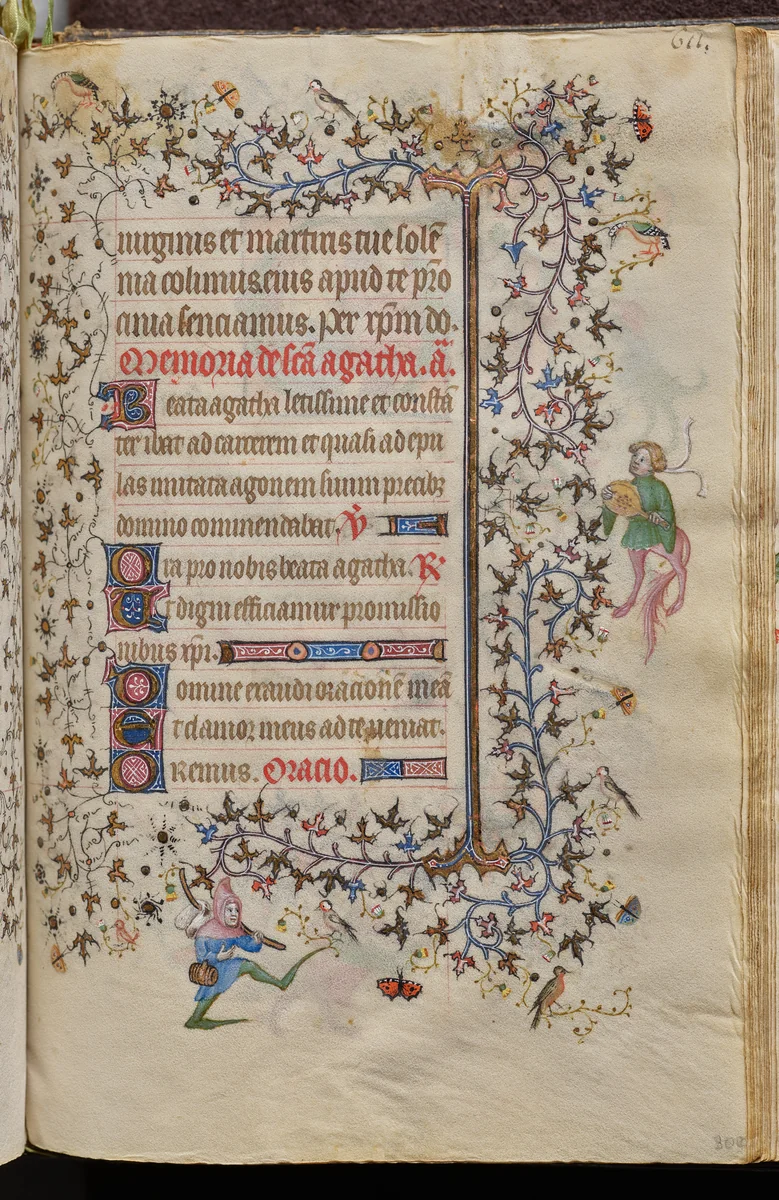 uirginis et martiris tue solē
nia colimus. eius apud te p̄ro
cinia senciamus. Per xp̄m do.
Memoria de sc̄a agatha. ā.
Beata agatha letissime et constā
ter ibat ad carcerem et quasi ad epu
las inuitata agonem suum precibꝫ
domino commendabat. ℣
Ora pro nobis beata agatha. ℟
Ut digni efficiamur promissio
nibus xp̄i.
Domine exaudi oracionē meā
Et clamor meus ad te ueniat.
Oremus. Oracio.
302